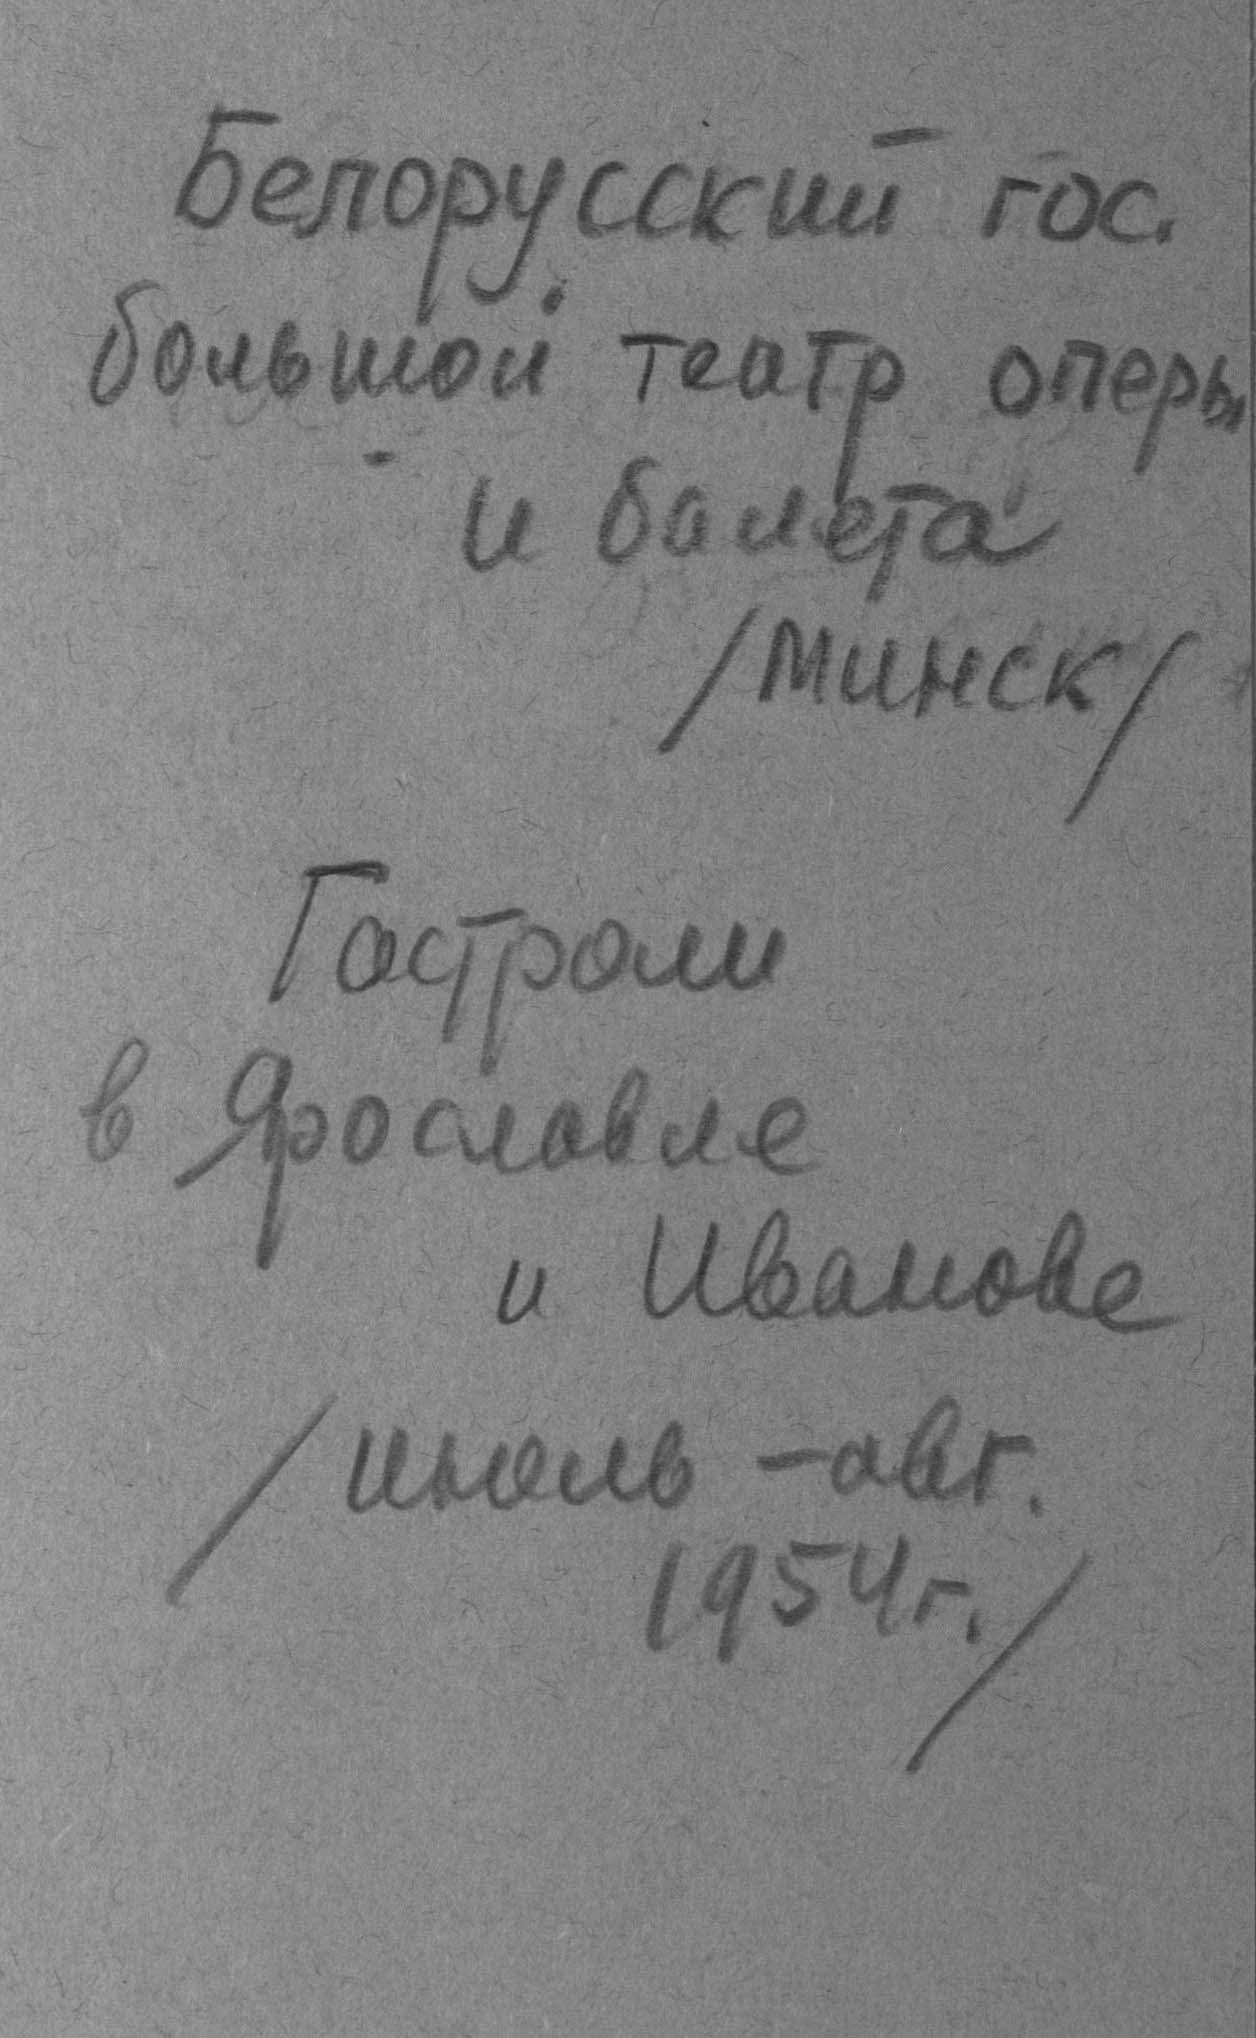 Белорусский гос.
большой театр оперы
и балета
/Минск/
Гастроли
в Ярославле
и Иванове
/июль - авг.
1954г./